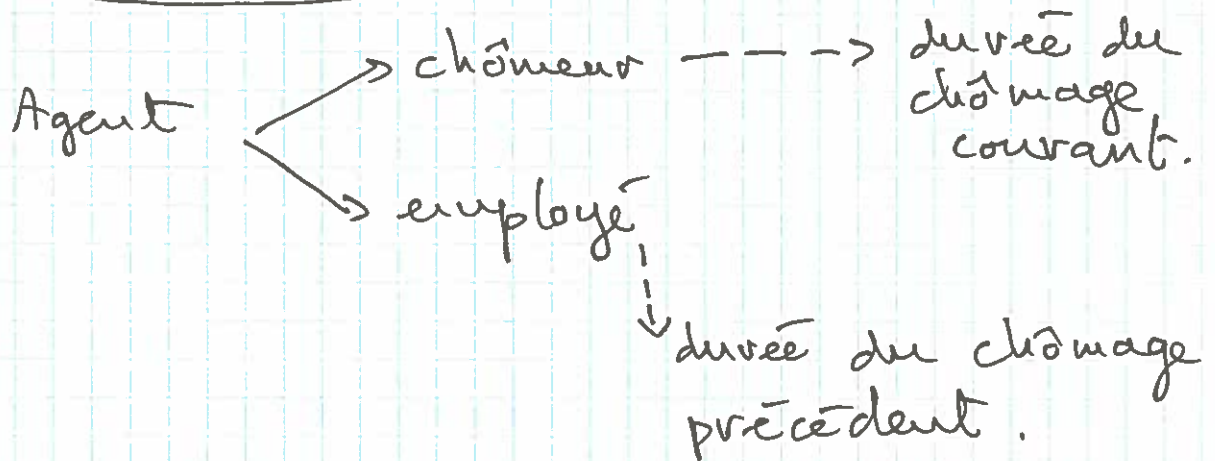 chômeur - - -> durée du
Agent
chômage
courant.
employé
durée du chômage
précédent.